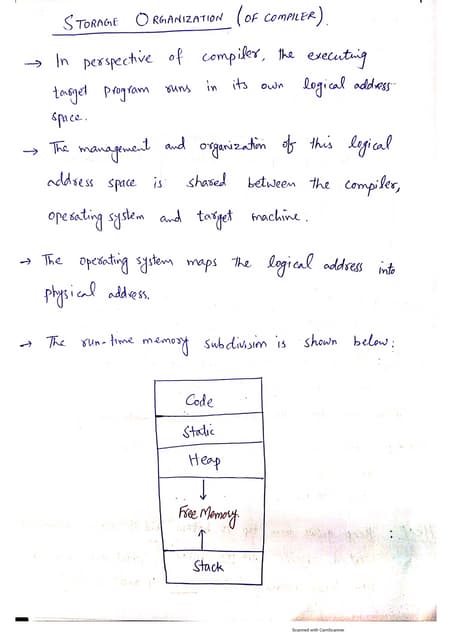 STORAGE ORGANIZATION (OF COMPILER).
→ In perspective of compiler, the executing
target program runs in its own logical address
space.
→ The management and organization of this logical
address space is shared between the compiler,
operating system and target machine.
→ The operating system maps the logical address into
physical address.
→ The run-time memory subdivision is shown below:
Code
Static
Heap
↓
Free Memory
↑
Stack
Scanned with CamScanner